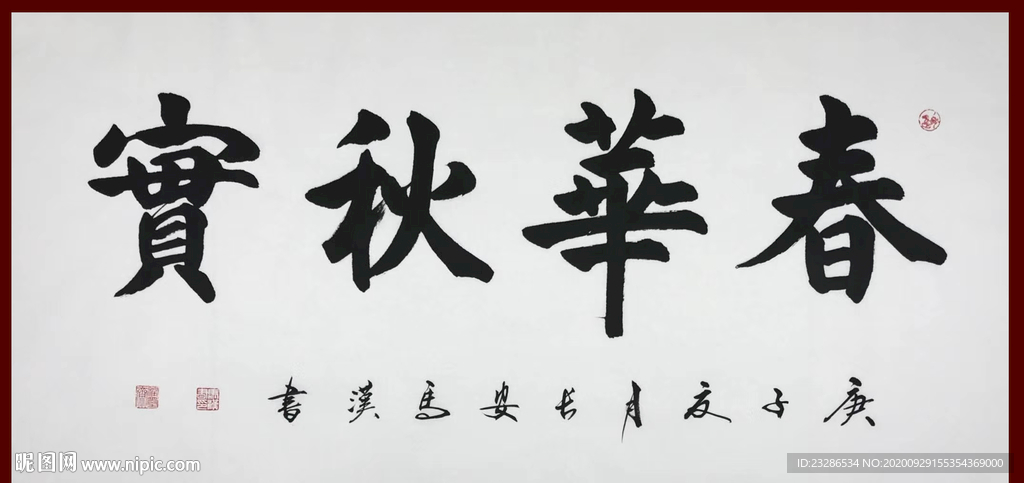 春華秋實
庚子夏月长安马漢書
昵图网 www.nipic.com
ID:23286534 NO:20200929155354369000